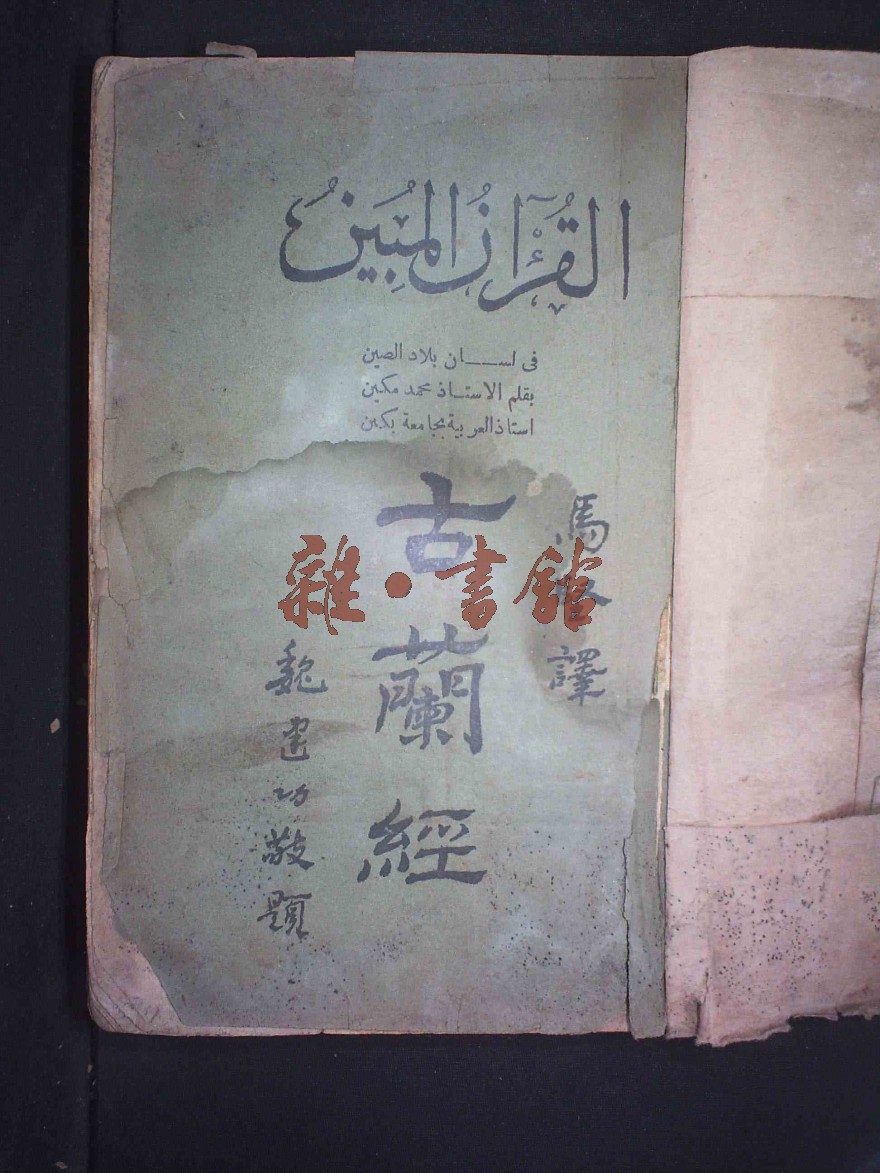 القُرْءآنُ المُبِينُ
فى لســـان بلاد الصين
بقلم الاستـاذ محمد مكين
استاذ العربية بجامعة بكين
馬 譯
古蘭經
魏建功敬題
雜·書館